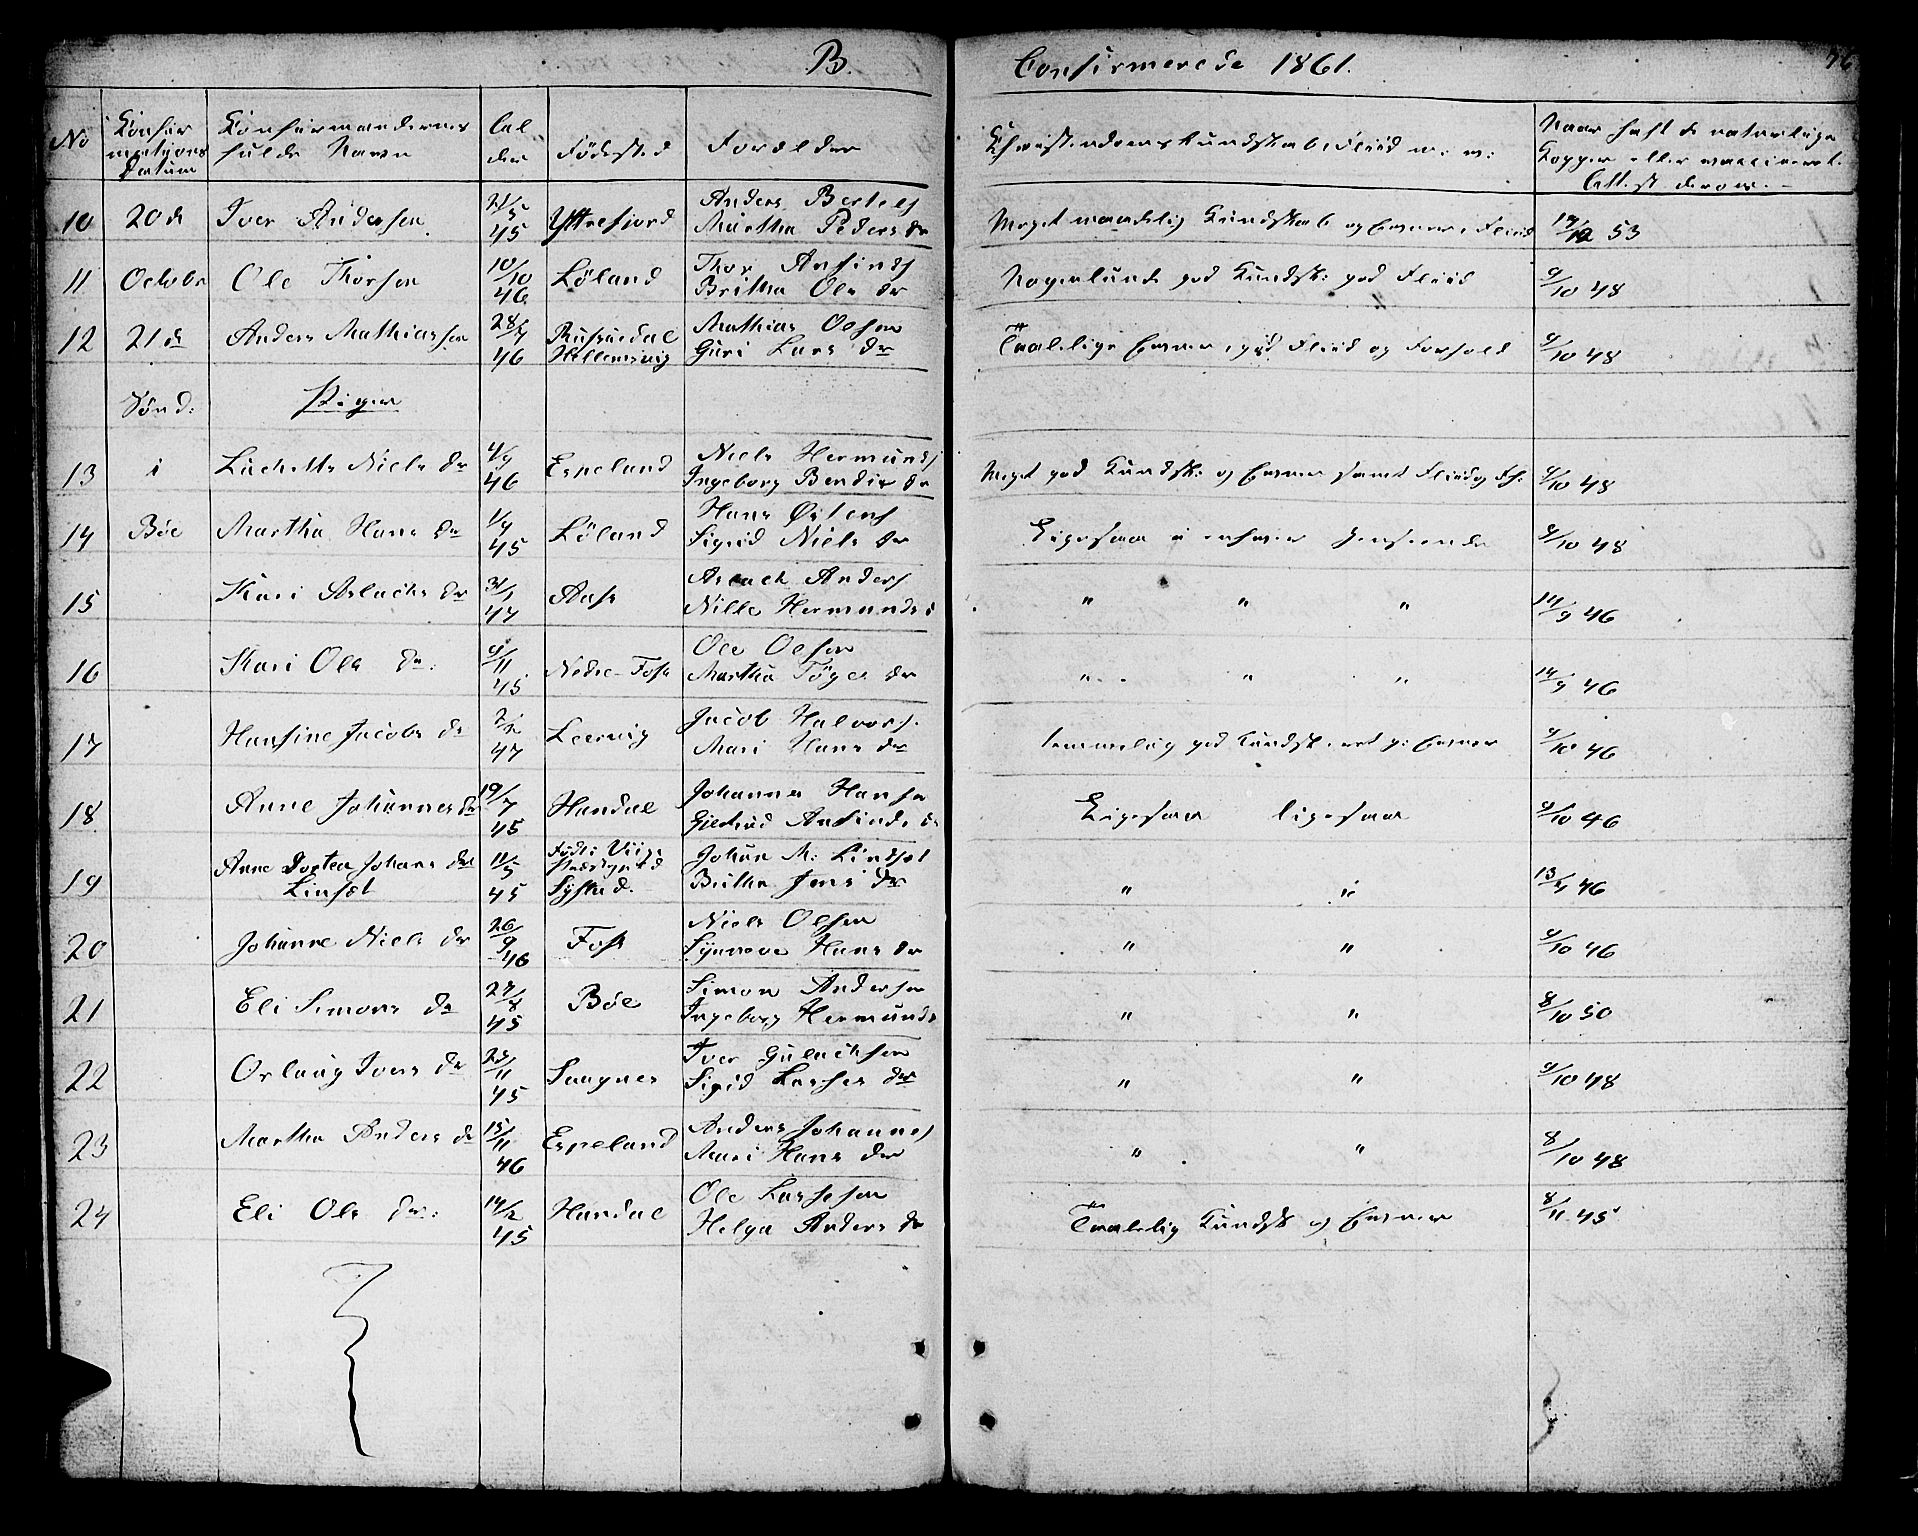 B. Confirmerede 1861. 76
No Konfir mations Datum Konfirmandernes fulde Navn Al der Fødested Forældre Christendomskundskab, Fliid m: m: Naar haft de naturlige Kopper eller vaccineret. Attest derom.
10 20de Iver Andersen 21/5 45 Yttrefjord Anders Bertels Martha Peders dr Meget maadelig Kundskab og Evner, Fliid 17/12 53
11 October Ole Thorsen 10/10 46 Löland Thor Ansinds Britha Ole dr Nogenlunde god Kundsk: god Fliid 9/10 48
12 21de Anders Mathiassen 28/7 46 Mathias Olsen Guri Lars dr Taalelige Evner, god Fliid og Forhold 9/10 48
Sönd: Piger
13 i Lachette Niels dr 4/9 46 Espeland Niels Hermunds Ingeborg Bendix dr Meget god Kundsk: og Evner samt Fliid og Fh. 9/10 48
14 Böe Martha Hans dr 1/9 45 Löland Hans Östens Sigrid Niels dr Ligesaa i enhver Henseende 9/10 48
15 Kari Aslachs dr 31/1 47 Aase Aslach Anders Nille Hermunds d " " " 14/9 46
16 Kari Ole dr: 9/11 45 Nedre-Foss Ole Olsen Martha Töger dr " " " 14/9 46
17 Hansine Jacobs dr 2/2 47 Leervig Jacob Halvors. Mari Hans dr temmelig god Kundsk. Evner 9/10 46
18 Anne Johannes dr 19/7 45 Handal Johannes Hansen Gjertrud Ansinds dr Ligesaa ligesaa 9/10 46
19 Anne Dortea Johans dr Linsöt 11/5 45 Födt i Viigs Præstegjeld Johan M: Linsöt Britha Jens dr " " 13/9 46
20 Johanne Niels dr 26/9 46 Foss Niels Olsen Synneve Hans dr " " 9/10 46
21 Eli Simons dr 27/8 45 Böe Simon Andersen Ingeborg Hermunds " " 8/10 50
22 Orlaug Ivers dr 23/11 45 Saagnes Iver Gulachsen Sigrid Lasses dr " " 9/10 48
23 Martha Anders dr 15/11 46 Espeland Anders Johannes Mari Hans dr " " 8/10 48
24 Eli Ole dr: 14/2 45 Handal Ole Lassesen Helga Anders dr Taalelig Kundsk og Evner 8/11 45